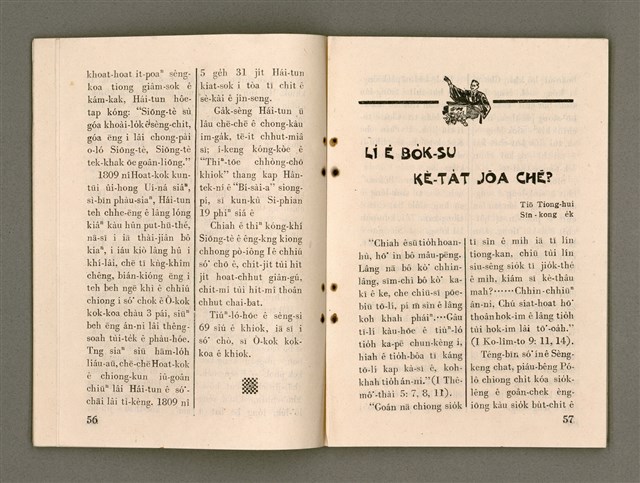 khoat-hoat it-poaⁿ sèng-
koa tiong giâm-sok ê
kám-kak, Hái-tun hôe-
tap kóng: "Siōng-tè sú
góa khoài-lo̍k ê sèng-chit,
góa ēng i lâi chong-pài
o-ló Siōng-tè, Siōng-tè
tek-khak òe goân-liōng."
1809 nî Hoat-kok kun-
tūi úi-hong Ui-ná siâⁿ,
si-bīn pháu-siaⁿ, Hái-tun
teh chhe-ēng ê lâng lóng
kiâⁿ kàu hūn put-hū-thé,
nā-sī i iā thài-jiân bô
kiaⁿ, i iáu kiò lâng hû i
khí-lâi, chē tī kǹg-khîm
chêng, bián-kióng ēng i
teh beh ngē khì ê chhiú
chiong i só͘ chok ê Ò-kok
kok-koa chàu 3 pái, siūⁿ
beh ēng àn-ni lâi thêng-
soah tùi-te̍k ê pháu-hôe.
Tng siaⁿ siū hām-lo̍h
liáu-āu, chē-chē Hoat-kok
ê chiong-kun iū-goân
chiūⁿ lâi Hái-tun ê só͘-
chāi lâi tì-kèng. 1809 nî
5 ge̍h 31 ji̍t Hái-tun
kiat-sok i tòa tī chit ê
sè-kài ê jîn-seng.
Ga̍k-sèng Hái-tun ū
lâu chē-chē ê chong-kàu
im-ga̍k, tē-it chhut-miâ
sī; i-keng kóng-kòe ê
"Thiⁿ-tōe chhòng-chō
khiok" thang kap Hân-
tek-nî ê "Bí-sài-a" siong-
pí, sì kun-kù Si-phian
19 phiⁿ siá ê
Chiah ê thiⁿ kóng-khí
Siōng-tè ê êng-kng kiong
chhong pò-iông I ê chhiú
só͘ chò ê, chit-ji̍t tùi hit
ji̍t hoat-chhut giân-gú,
chit-mî tùi hit-mî thoân
chhut chai-bat.
Tiúⁿ-ló-hōe ê sèng-si
69 siú ê khiok, iā sī i
só͘ chò, sī Ò-kok kok-
koa ê khiok.
56
LÍ Ê BO̍K-SU
KÈ-TA̍T JŌA CHĒ?
Tiō Tiong-hui
Sin-kong e̍k
"Chiah ê sū tio̍h hoan-
hù, hō͘ in bô mâu-pēng.
Lâng nā bô kò͘ chhin-
lâng, sīm-chì bô kò͘ ka-
kī ê ke, che chiū-sī pōe-
biū tō-lí, pí m̄ sìn ê lâng
koh khah pháiⁿ.…Gâu
tī-lí kàu-hōe ê tiúⁿ-ló
tio̍h ka-pē chun-kèng i,
hiah ê tio̍h-bôa tī káng
tō-lí kap kà-sī ê, koh-
khah tio̍h án-ni." (I Thê-
mô͘-thài 5: 7, 8, 11).
"Goán nā chiong sio̍k
tì sîn ê mi̍h iā tī lín
tiong-kan, chiū tùi lín
siu-sêng sio̍k tī jio̍k-thé
ê mi̍h, kiám sī kè-thâu
mah?……Chhin-chhiūⁿ
án-ni, Chú siat-hoat hō͘
thoân hok-im ê lâng tio̍h
tùi hok-im lâi tō͘-oa̍h."
(I Ko-lîm-to 9: 11, 14).
Téng-bīn só͘ ín ê Sèng-
keng chat, piáu-bêng Pó-
lô chiong chit kóa sio̍k-
lêng ê goân-chek èng-
iōng kàu sio̍k bu̍t-chit ê
57